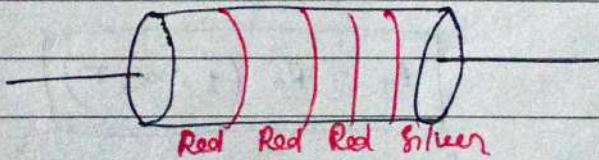 Red Red Red Silver